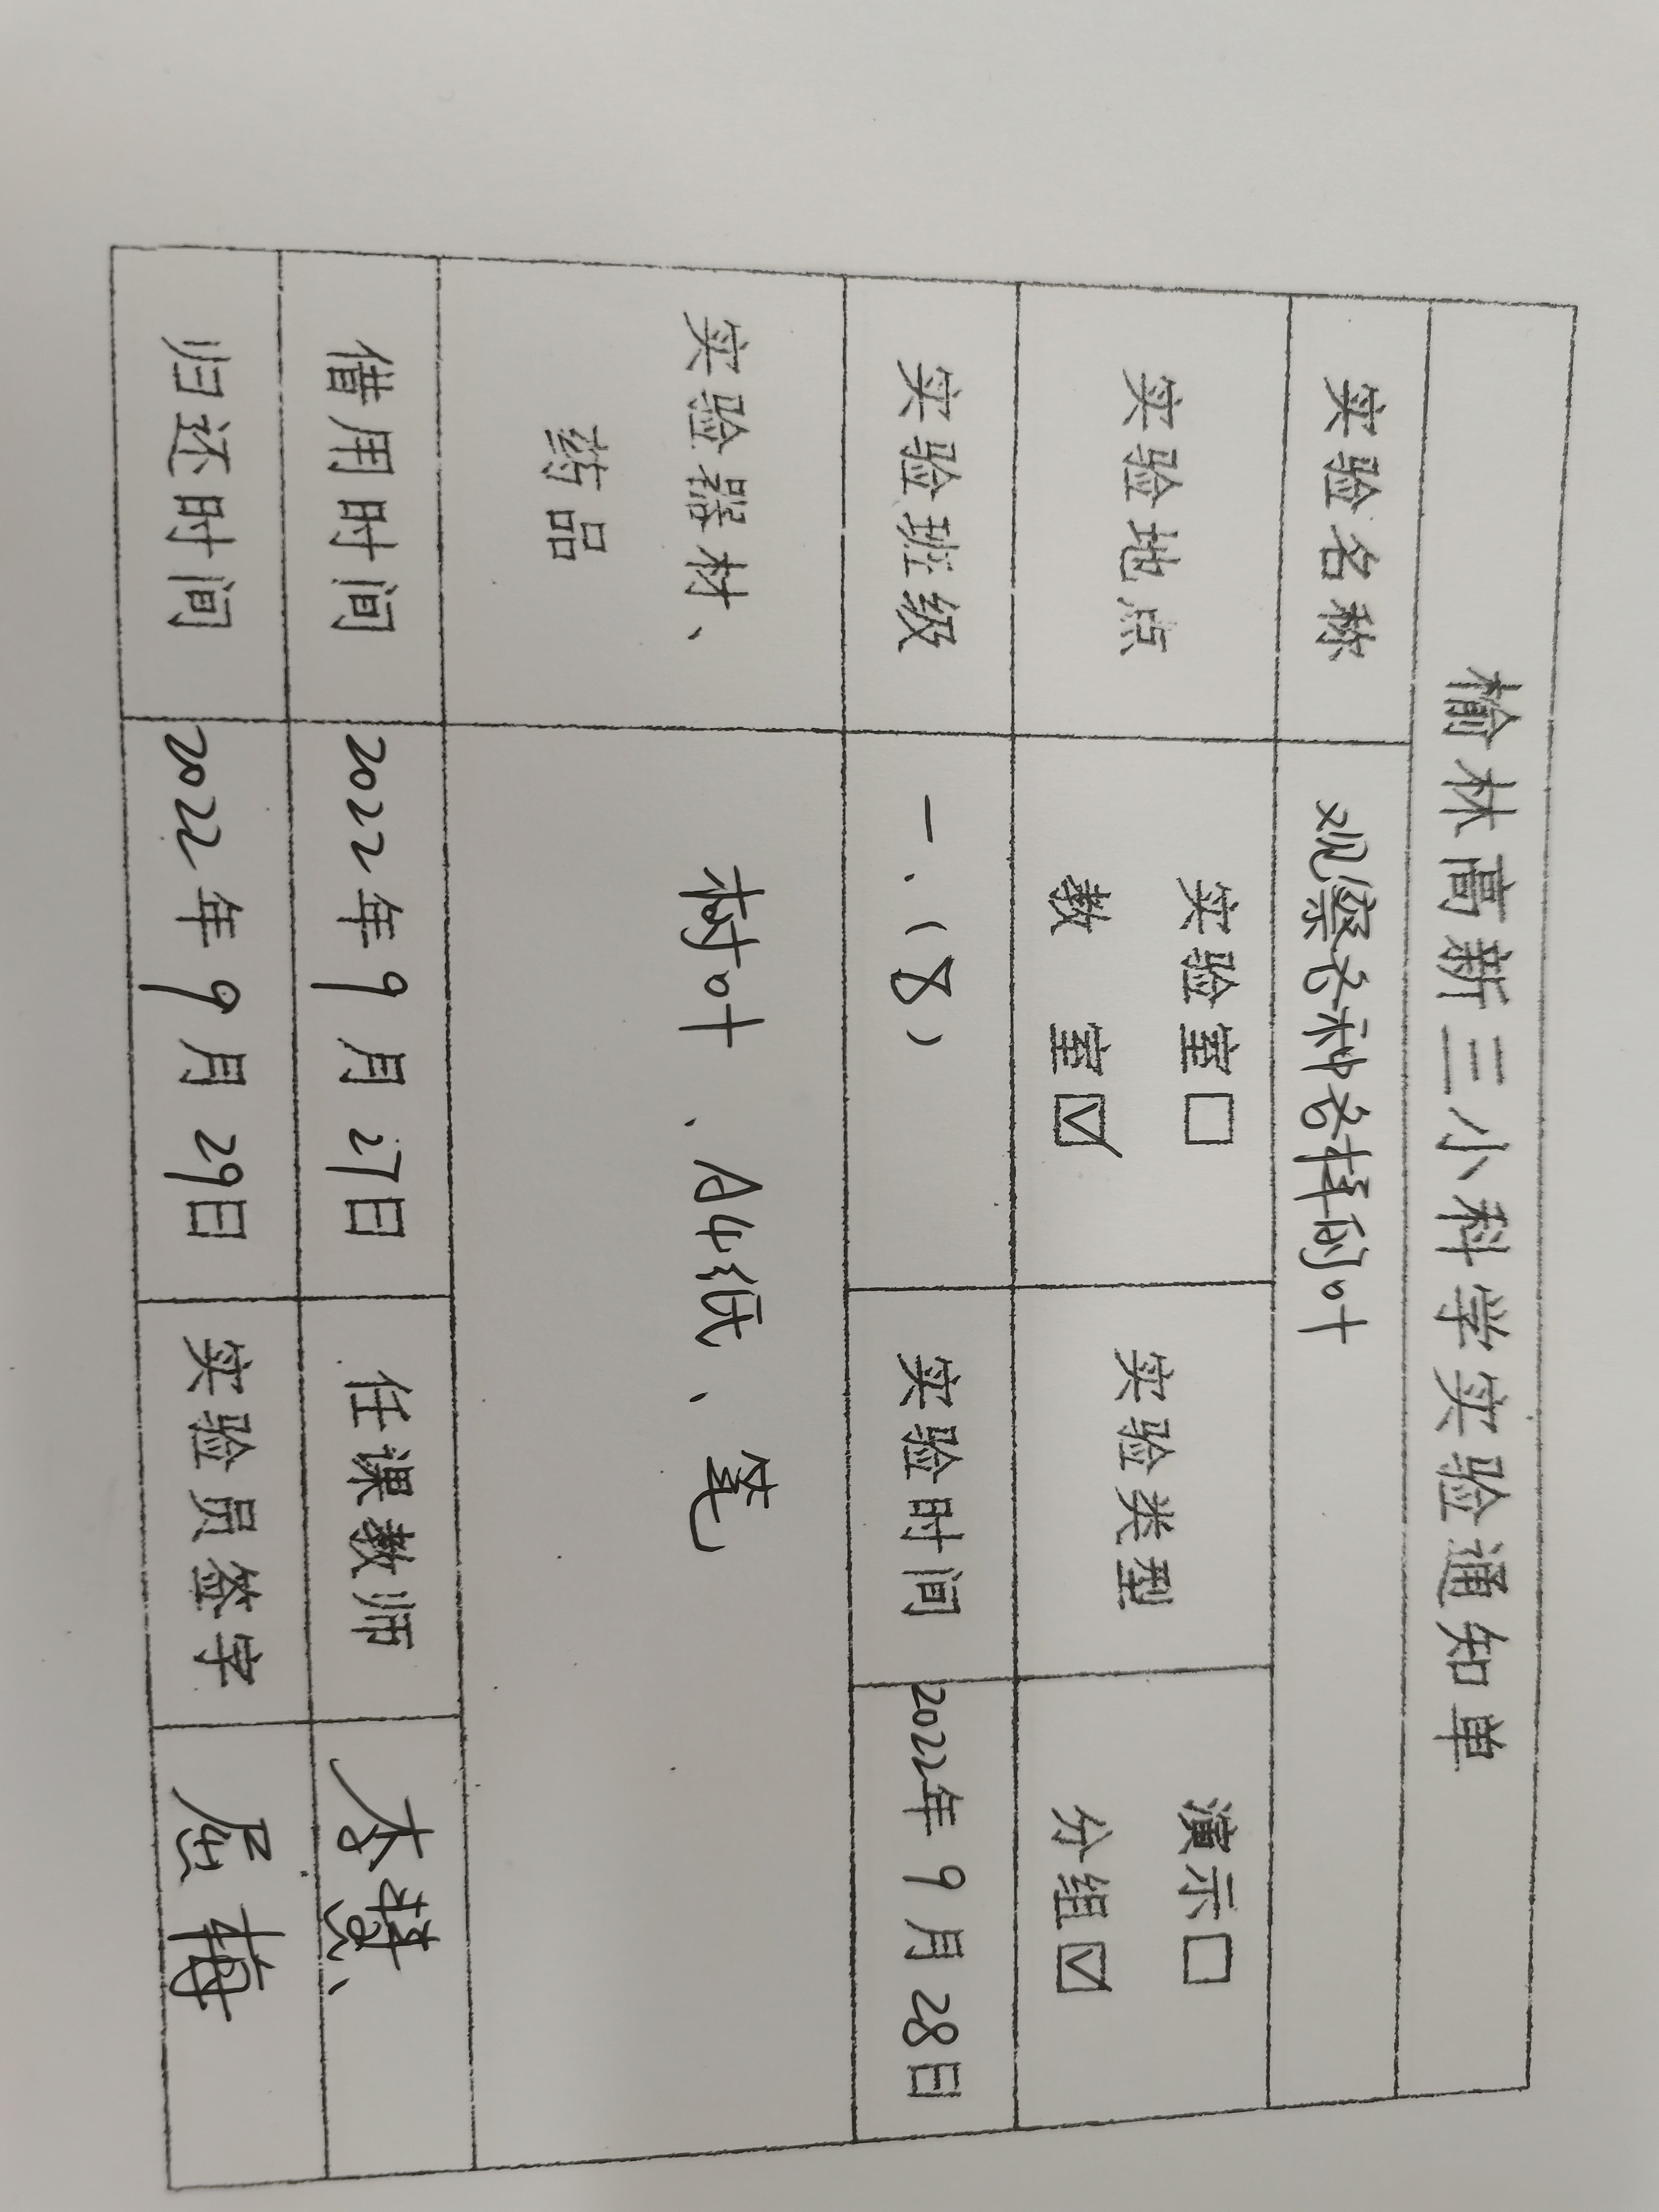 榆林高新三小科学实验通知单
实验名称 观察各种各样的叶
实验地点 实验室☐ 教 室☑ 实验类型 演示☐ 分组☑
实验班级 一.(8) 实验时间 2022年9月28日
实验器材、药品 树叶、A4纸、笔
借用时间 2022年9月27日 任课教师 李
归还时间 2022年9月29日 实验员签字 屈